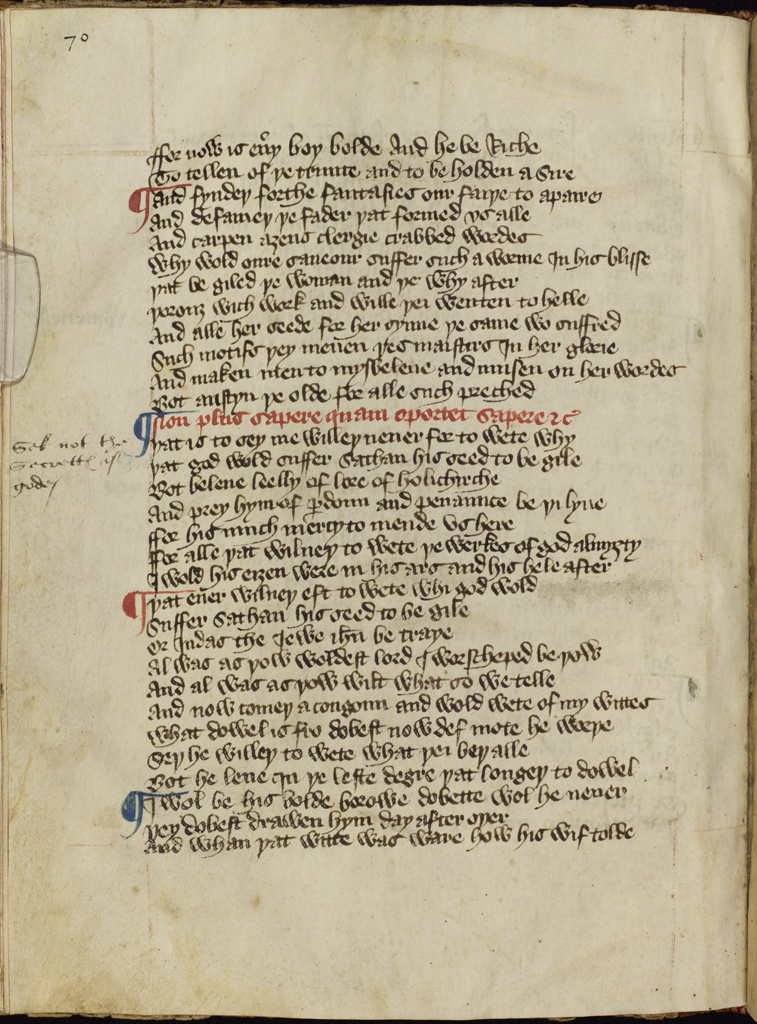 70
ffor now is eu'y boy bolde And he be Riche
To tellen of þe trinite and to be holden a Sire
And fyndeþ forthe fantasies our faiþe to apaire
And defameþ þe fader þat formed vs alle
And carpen aȝens clergie crabbed wordes
Why wold oure saueour suffer such a worme In his blisse
þat be giled þe woman and þe why after
þorouȝ wich work and wille þei wenten to helle
And alle her seede for her synne þe same wo suffred
Such motifs þey meuen þes maistirs In her glorie
And maken men to mysbeleue and musen on her wordes
Bot austyn þe olde for alle such preched
Non plus sapere quam oportet sapere &c
þat is to sey ne willeþ neuer for to wete why
þat god wold suffer Sathan his seed to be gile
Bot beleue leelly of lore of holichirche
And prey hym of p'doun and penaunce be þi lyue
ffor his much mercy to mende vs here
ffor alle þat wilneþ to wete þe werkes of god almyȝty
I wold his eiȝen were in his ars and his hele after
þat euer wilneþ eft to wete whi god wold
Suffer Sathan his seed to be gile
Or Iudas the Iewe ihu be traye
Al was as þow woldest lord I worscheped be þow
And al was as þow wilt what so we telle
And now comeþ a congoun and wold wete of my wittes
What dowel is fro dobest now def mote he worþe
Seþ he willeþ to wete what þei beþ alle
Bot he leue In þe leste degre þat longeþ to dowel
I wol be his bolde borowe dobette wol he neuer
þey dobest drawen hym day after oþer
And whan þat witte was ware how his wif tolde
Sek not the
Secrett(es) of
godes